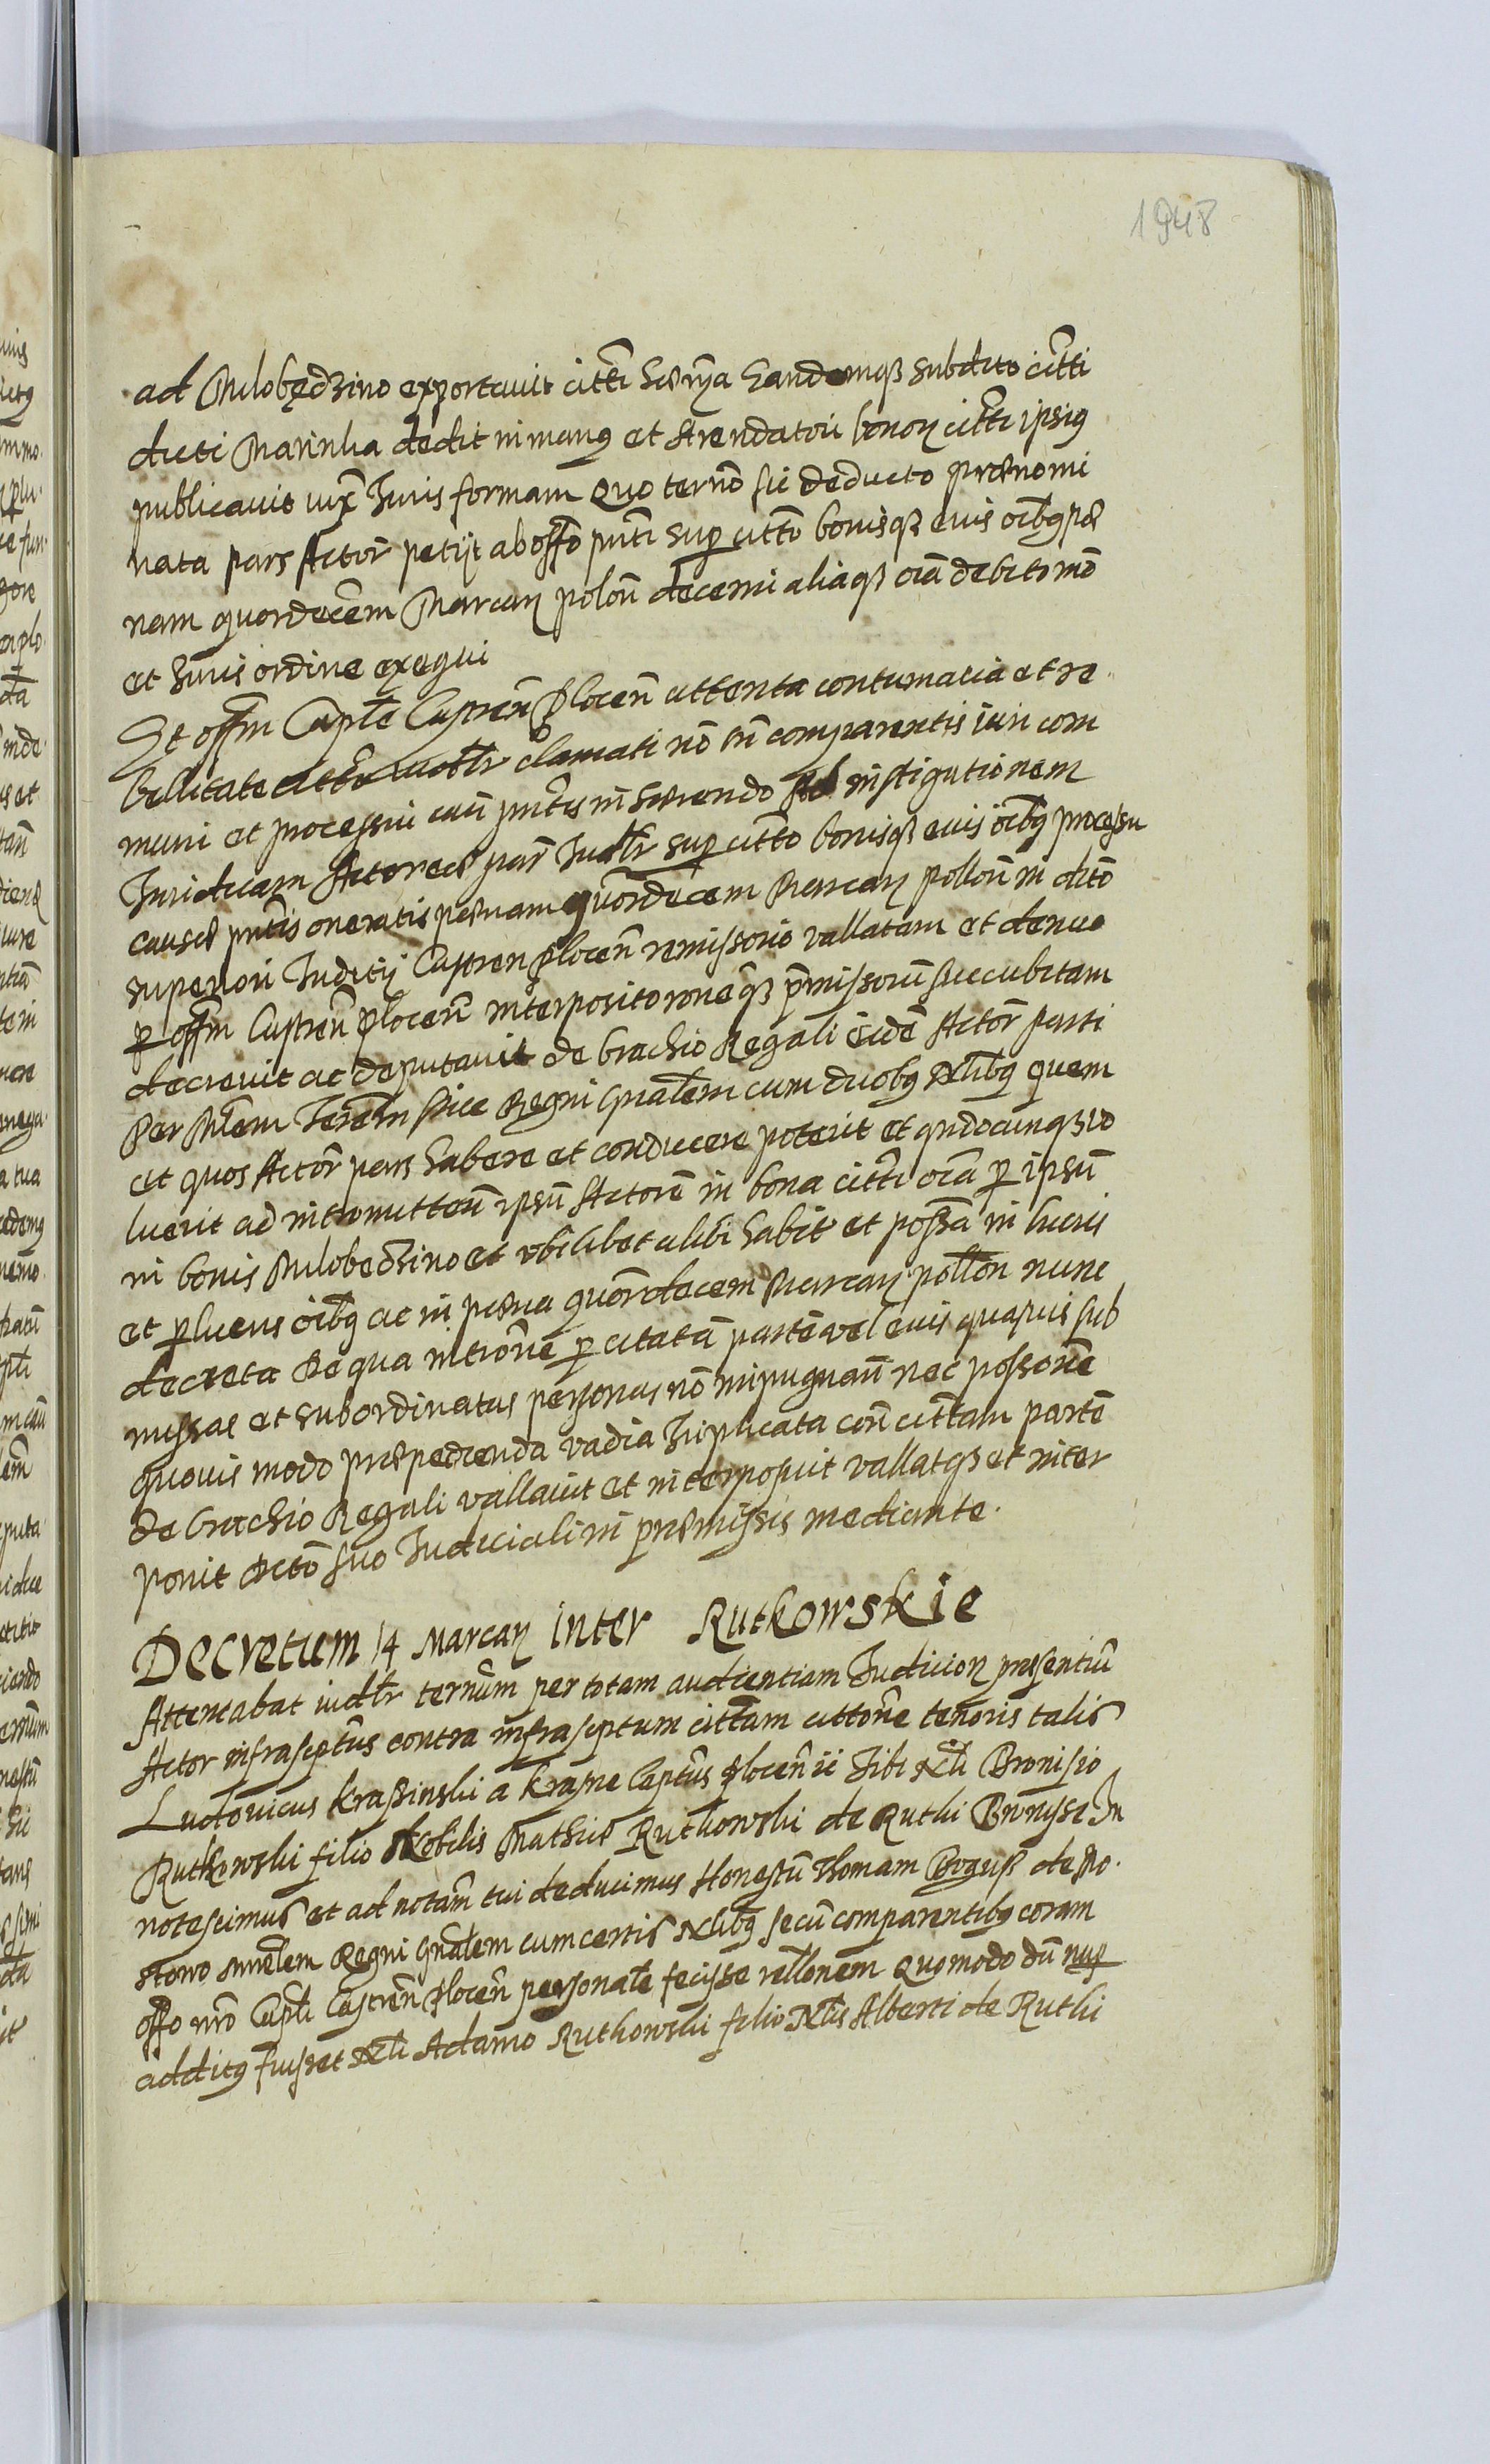 1948
ad Milobędzino exportauit citti Sup ma Eandemqз subdito citti
dicti Marinka dedit in manꝯ et Arendatori bonoꝝ citti ipsiꝯ
publicauit iuxᵃ Juris formam Quo termõ sic deducto prænomi
nata pars Actor̃ petijt ab offõ pnti sup citto bonisqз euis oibꝯ pæ
nam quordecem Marcaꝝ polon̄ decerni aliaqз oīa debito mõ
et Juris ordine exequi
Et offm̃ Capłe Castren̄ Plocen̄ attenta contumacia et re
bellitate citti iudłr clamati nõ tn̄ comparentis iuri com
muni et processui causæ pntis inhærendo Ad instigationem
Juridicam Actoreæ par̃ Judłr sup citto bonisqз euis oibꝯ processu
causæ pntis oneratis pænam quordecem Marcaꝝ pollon̄ in dctõ
superiori Juditij Castren̄ Plocen̄ remissorio vallatam et denuo
p offm̃ Castren̄ Plocen̄ interposito roneqз p̄missorū succubitam
decreuit ac deputauit de brachio Regali eidē Actor̃ parti
Per Mlem Jerelem siue Regni Gnalem cum duobꝯ Nlibꝯ quem
et quos Actor̃ pars habere et conducere poterit et qndocunqз vo
luerit ad intromitteñ ipsū Actorē in bona citti oīa p ipsū
in bonis Milobedzino et vbilibet alibi habit et possa in lucris
et p lucris oibꝯ ac in pæna quordecem Marcaꝝ pollon̄ nunc
decreta De qua intronē p citatā partē vel euis quasuis sub
missas et subordinatas personas nõ impugnan̄ nec possonē
quouis modo præpedienda vadia Triplicata con̄ cittam partē
de brachio Regali vallauit et interposuit vallatqз et inter
ponit Dctõ suo Judiciali in præmissis mediante.
Decretum 14 Marcaꝝ inter Rutkowskie
Attentabat iudłr termim per totam audientiam Judicioꝝ præsentiū
Actor infrascptus contra infrascptum cittam cittonē tenoris talis
Ludouicus Krasinski a Krasne Captns Plocen̄ ii Tibi Nli Bronisio
Rutkowski filio Nobilis Mathiæ Ruthowski de Ruthi Bronisze In
notescimus et ad notam̄ tui deducimus Honestū Thomam Bogusz de Ro
stowo mnrlem Regni Gnalem cum certis Nlibꝯ secū comparentibꝯ coram
offo nrõ Capli Castren̄ Plocen̄ personałe fecisse rellonem Quomodo dū nup
additꝯ fuisset Nli Adamo Ruthowski filio Nlis Alberti de Ruthi